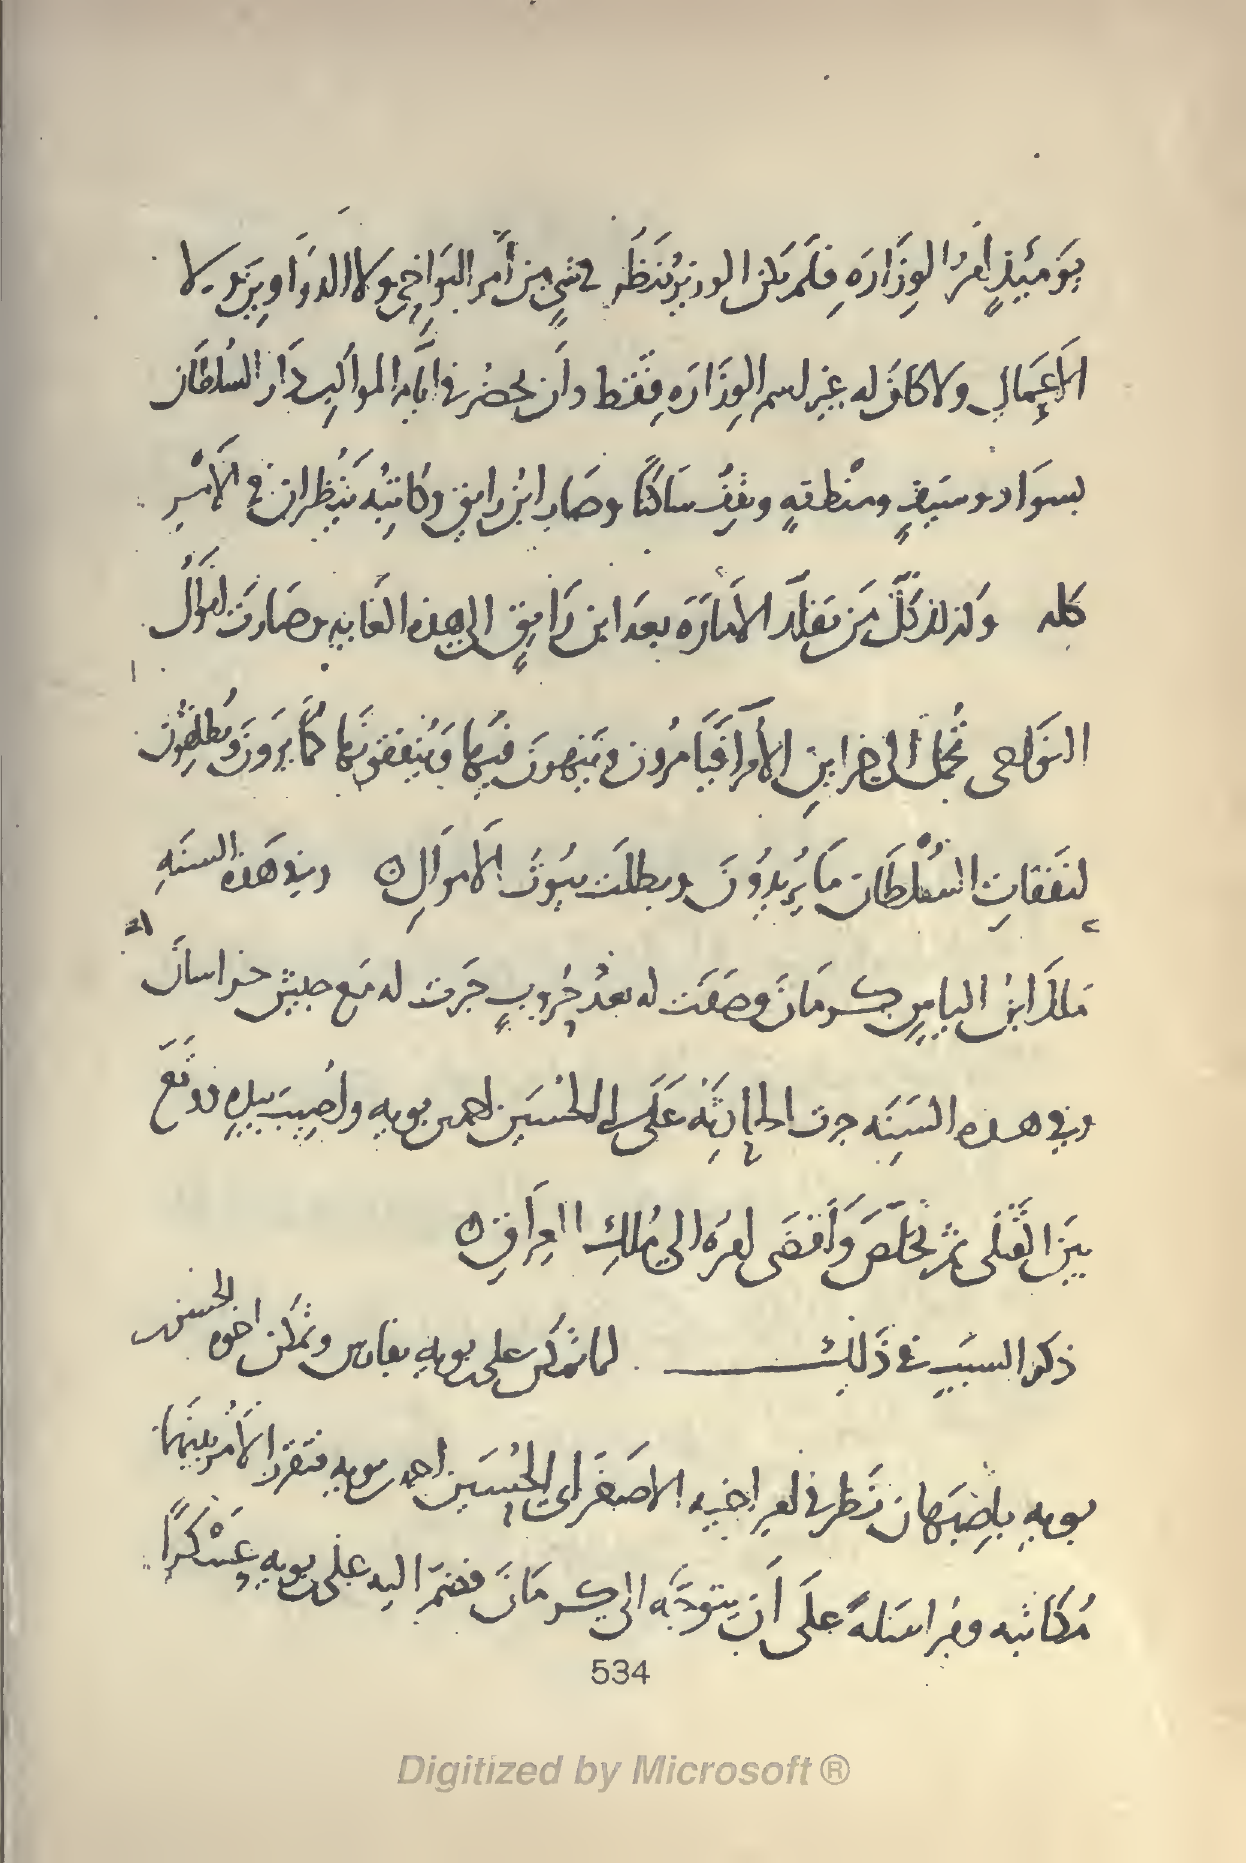 يَومَئِذٍ أمرُ الوِزَارَه فلَم يَكن الوزيرُ يَنظُر في شيءٍ مِن أمر النَوَاحِي ولا الدوَاوين ولا
الأعمَال ولا كانَ له غير اسم الوِزَارَه فقَط وأن يحضُر في ايّام المواكِب دَار السُلطَان
بسوَادٍ وسَيفٍ ومنْطقهٍ ويقِفُ ساكتًا وصَار ابنُ رايق وكاتبُه يَنظُران في الأمْرِ
كلِه وكذلك كلّ مَن تقلّد الامَارَة بعدَ ابن رَايقٍ الى هذه الغَايه وصَارَت اموَالُ
النَوَاحى تُحمَل الى خزاين الأمرآ فيَأمرُون ويَنهونَ فيهَا ويُنفقونهَا كمَا يَرَونَ ويُطلِقُونَ
لنفَقاتِ السُلْطَان مَا يُريدُونَ وبطلَت بيُوتُ الأموَالِ ٥ وفي هَذه السنَهِ
مَلكَ ابنُ الياسٍ كرمَانَ وصَفَت له بعدْ حُروبٍ جَرَت له مَع جيش خراسَانَ
وفي هذه السَنَه جرت الحادِثَه عَلَى ابي الحُسَين احمد بن بويه واُصِيبَ بيدِهِ ووقَعَ
بينَ القَتلَى ثمّ تخلّصَ وَأفضَى امرُه الى مُلكِ العِرَاقِ ٥
ذكر السبَبِ في ذَلِك لما تمكّن على بن بويه بفارس وتمكن اخوه الحسن بن
بويهِ باصبَهان نَظر في امر اخيه الاصغَر ابي الحُسَين احمد بن بويه فتقرر الأمرُ بينَهما
مُكاتبه ومُراسَلهً علَى أن يتوَجّه الى كرمَانَ فضمّ اليه على بن بويهِ عَسْكَرًا
534
Digitized by Microsoft ®